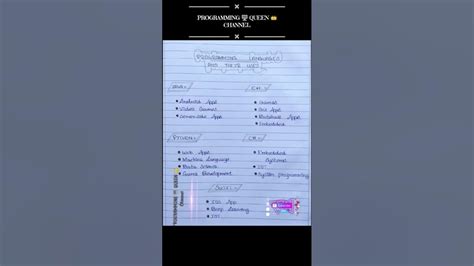 PROGRAMMING 👑 QUEEN 👑
CHANNEL
PROGRAMMING LANGUAGES
AND THEIR USES
Android Apps
Video Games
Games
GUI Apps
Embedded
PYTHON
Web Apps
Machine Language
Data Science
Game Development
Embedded
Systems
IOT
System programming
IOS App
Deep Learning
IOT
PROGRAMMING QUEEN
Channel